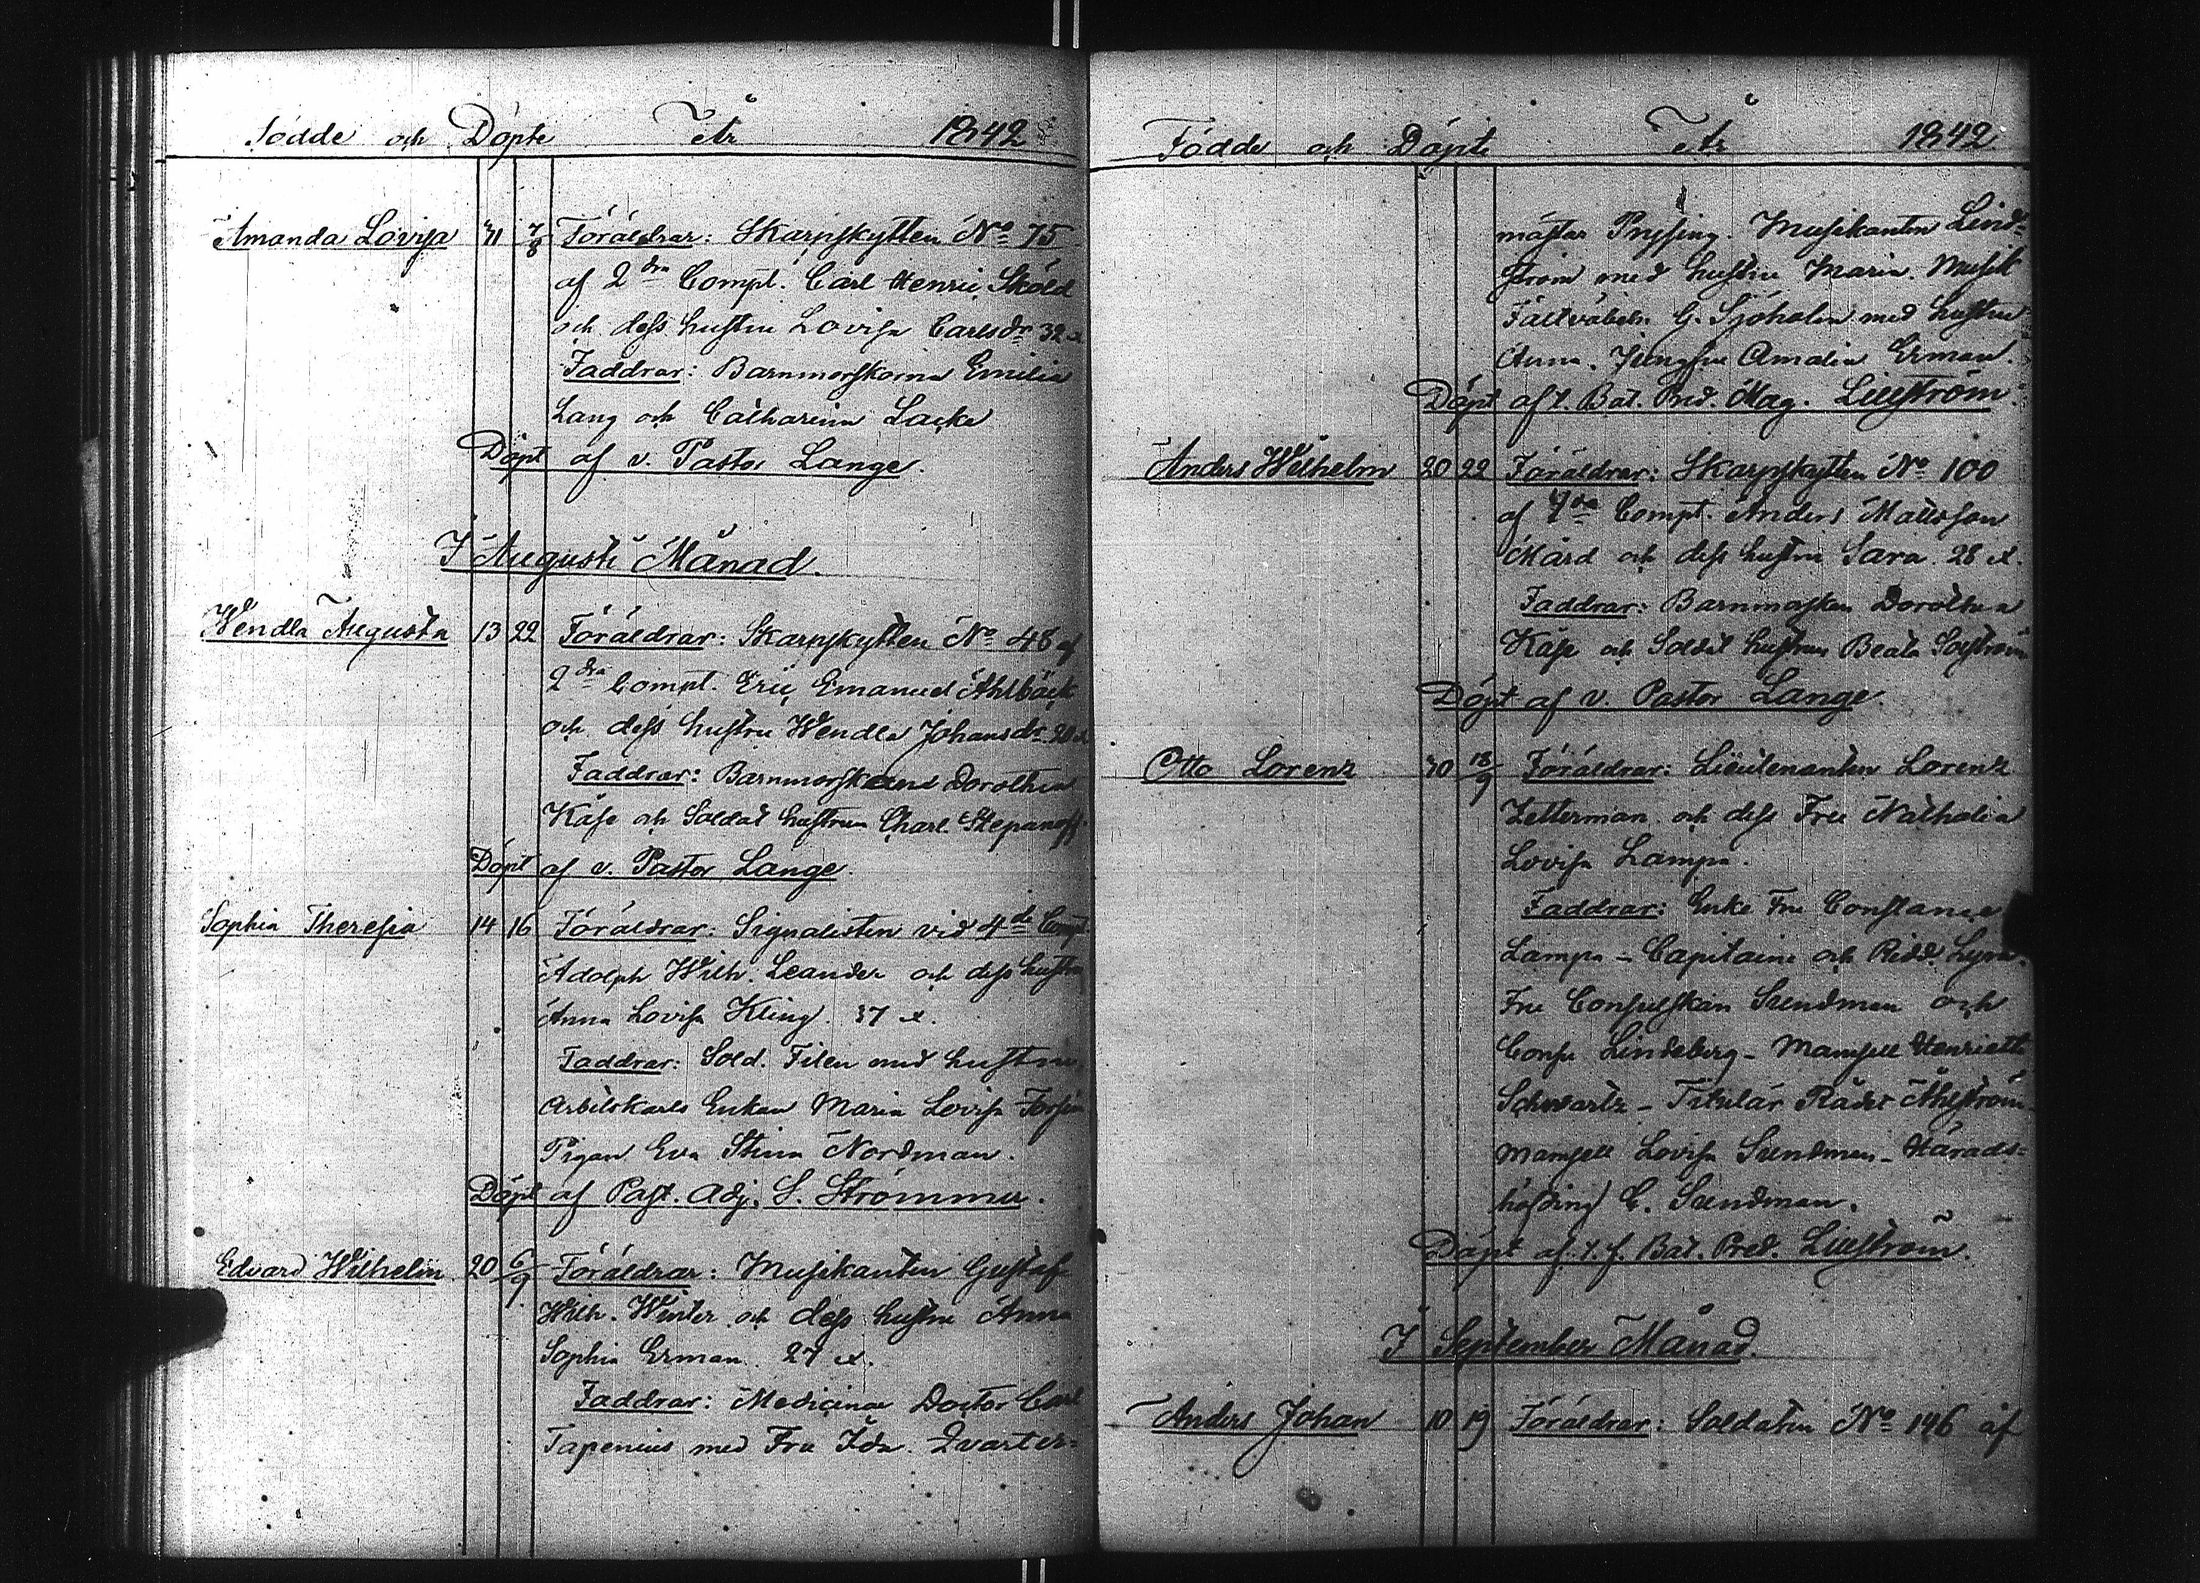 Födde och Döpte År 1842
Amanda Lovisa 31 7/8 Föräldrar: Skarpskytten No 75
af 2dra Compt. Carl Henric Sköld
och dess hustru Lovisa Carlsdr 32 å
Faddrar: Barnmorskorna Emilia
Lang och Catharina Lacke
Döpt af v. Pastor Lange.
I Augusti Månad.
Wendla Augusta 13 22 Föräldrar: Skarpskytten No 48 af
2dra Compt. Eric Emanuel Ahlbäck
och dess hustru Wendla Johansdr 20 å
Faddrar: Barnmorskorna Dorothea
Kåse och Soldat hustrun Charl. Stepanoff.
Döpt af v. Pastor Lange.
Sophia Theresia 14 16 Föräldrar: Signalisten vid 4de Compt.
Adolph Wilh. Leander och dess hustru
Anna Lovisa Kling. 37 å.
Faddrar: Sold. Filen med hustru
Arbetskarls Enkan Maria Lovisa
Pigan Eva Stina Nordman.
Döpt af Past. Adj. S. Strömmer.
Edvard Wilhelm 20 6/9 Föräldrar: Musikanten Gustaf
Wilh. Winter och dess hustru Anna
Sophia Erman. 27 å.
Faddrar: Medicinæ Doctor Carl
Tapenius med Fru Ida. Qvarter-
Födde och Döpte År 1842
mästar Pryssing. Musikanten Lind-
ström med hustru Maria. Musik
Fältväbeln G. Sjöholm med hustru
Anna. Jungfru Amalia Erman.
Döpt af t. Bat. Pred. Mag. Liljeström.
Anders Wilhelm 20 22 Föräldrar: Skarpskytten No 100
af Compt. Anders Mattsson
Mård och dess hustru Sara 28 å.
Faddrar: Barnmorskan Dorothea
Kåse och Soldat hustrun Beata
Döpt af v. Pastor Lange.
Otto Lorenz 30 18/9 Föräldrar: Lieutenanten Lorenz
Zetterman och dess Fru Nathalia
Lovisa Lampa.
Faddrar: Enke Fru Constance
Lampa - Capitaine och Ridd.
Fru Consulskan Sundman och
Consu Lindeberg - Mamsell Henriette
Schwartz - Titulär Rådet Åhlström
Mamsell Lovisa Sundman - Härads-
höfding C. Sundman.
Döpt af t. f. Bat. Pred. Liljeström.
I September Månad.
Anders Johan 10 19 Föräldrar: Soldaten No 146 af